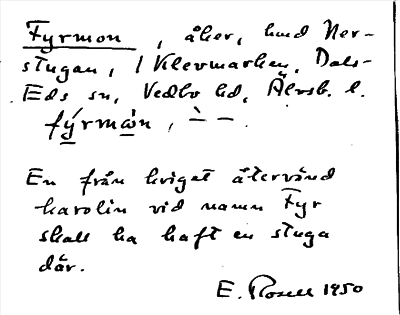 Fyrmon, åker, hmd Ner-
stugan, 1 Klevmarken, Dals-
Eds sn, Vedbo hd, Älvsb. l.
fýrmòn, ` – –.
En från kriget återvänd
karolin vid namn Fyr
skall ha haft en stuga
där.
E. Rosell 1950